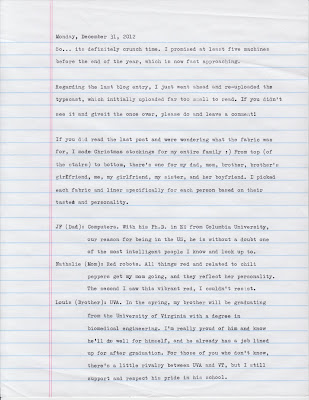 Monday, December 31, 2012
So... its definitely crunch time. I promised at least five machines
before the end of the year, which is now fast approaching.
Regarding the last blog entry, I just went ahead and re-uploaded the
typecast, which initially uploaded far too small to read. If you didn't
see it and giveit the once over, please do and leave a comment!
If you did read the last post and were wondering what the fabric was
for, I made Christmas stockings for my entire family :) From top (of
the stairs) to bottom, there's one for my dad, mom, brother, brother's
girlfriend, me, my girlfriend, my sister, and her boyfriend. I picked
each fabric and liner specifically for each person based on their
tastes and personality.
JF (Dad): Computers. With his Ph.D. in EE from Columbia University,
our reason for being in the US, he is without a doubt one
of the most intelligent people I know and look up to.
Nathalie (Mom): Red robots. All things red and related to chili
peppers get my mom going, and they reflect her personality.
The second I saw this vibrant red, I couldn't resist.
Louis (Brother): UVA. In the spring, my brother will be graduating
from the University of Virginia with a degree in
biomedical engineering. I'm really proud of him and know
he'll do well for himself, and he already has a job lined
up for after graduation. For those of you who don't know,
there's a little rivalry between UVA and VT, but I still
support and respect his pride in his school.